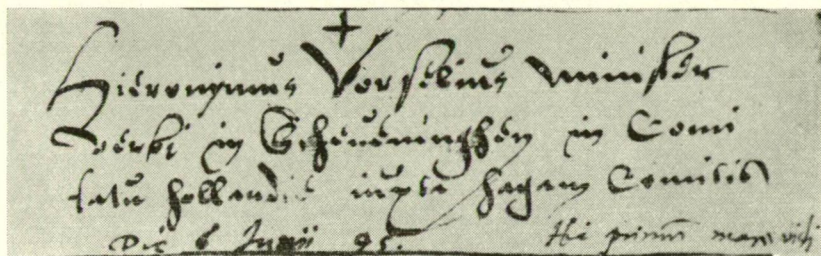 Hieronymus Vorselius minister
verbi in Scheveninghen in Comi
tatu Hollandie iuxta Hagam Comitis
Die 6 Junii 95. Hic primũ mare vidi